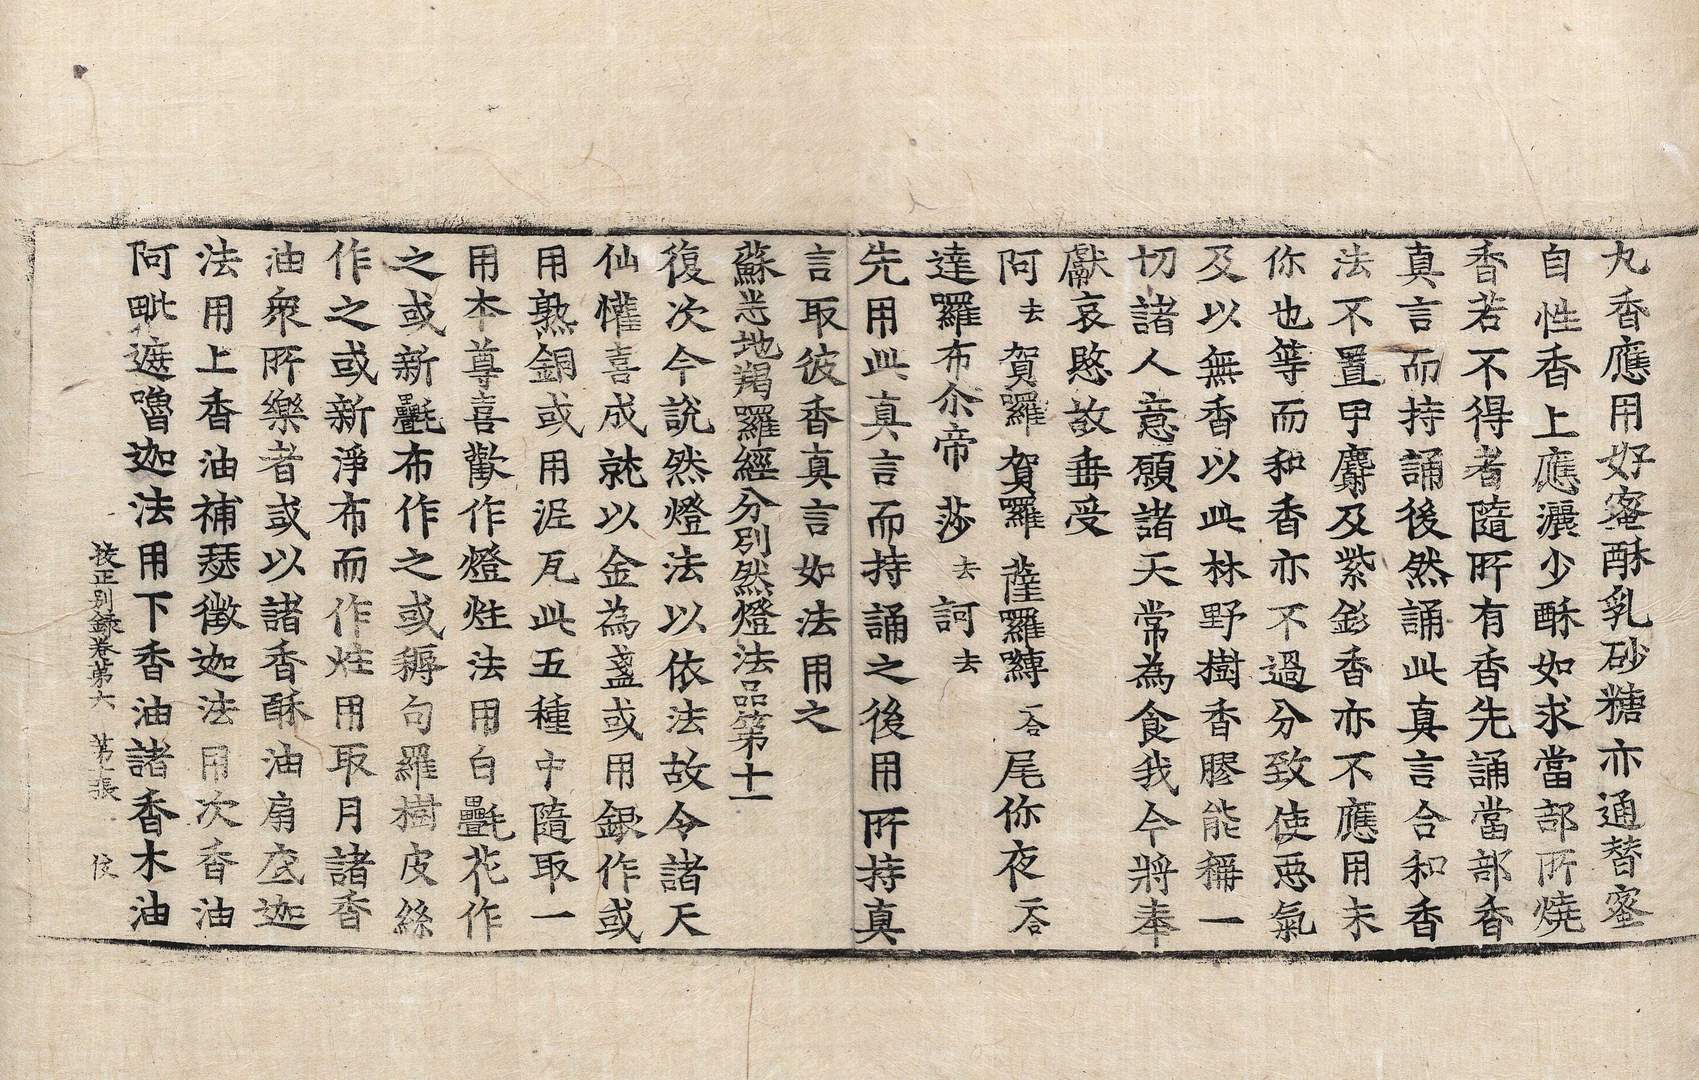 丸香應用好蜜酥乳砂糖亦通替蜜
自性香上應灑少酥如求當部所燒
香若不得者隨所有香先誦當部香
真言而持誦後然誦此真言合和香
法不置甲麝及紫釤香亦不應用末
你也等而和香亦不過分致使惡氣
及以無香以此林野樹香膠能稱一
切諸人意願諸天常為食我今將奉
獻哀愍故垂受
阿去賀羅賀羅薩羅縳二合尾你夜二合
達羅布尒帝莎去訶去
先用此真言而持誦之後用所持真
言取彼香真言如法用之
蘇悉地羯羅經分別然燈法品第十一
復次今說然燈法以依法故令諸天
仙懽喜成就以金為盞或用銀作或
用熟銅或用泥瓦此五種中隨取一
用本尊喜歡作燈炷法用白㲲花作
之或新㲲布作之或耨句羅樹皮絲
作之或新淨布而作炷用取月諸香
油衆所樂者或以諸香酥油扇底迦
法用上香油補瑟徵迦法用次香油
阿毗遮嚕迦法用下香油諸香木油
挍正別錄卷第六 第張